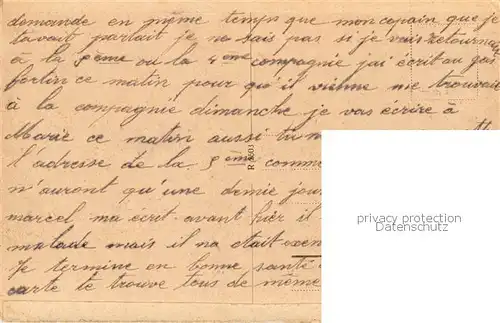 demande en même temps que mon copain que je
tavait parlait je ne sais pas si je vais retourner
à la 5eme ou la 4eme compagnie jai écrit au gas
fortin ce matin pour qu'il vienne me trouvai
à la compagnie dimanche je vas écrire à
Marie ce matin aussi tu
l'adresse de la 5eme comme
n'auront qu'une demie jour
marcel ma écrit avant hier il
malade mais il na etait exen
Je termine en bonne santé
carte te trouve tous de même
privacy protection
Datenschutz